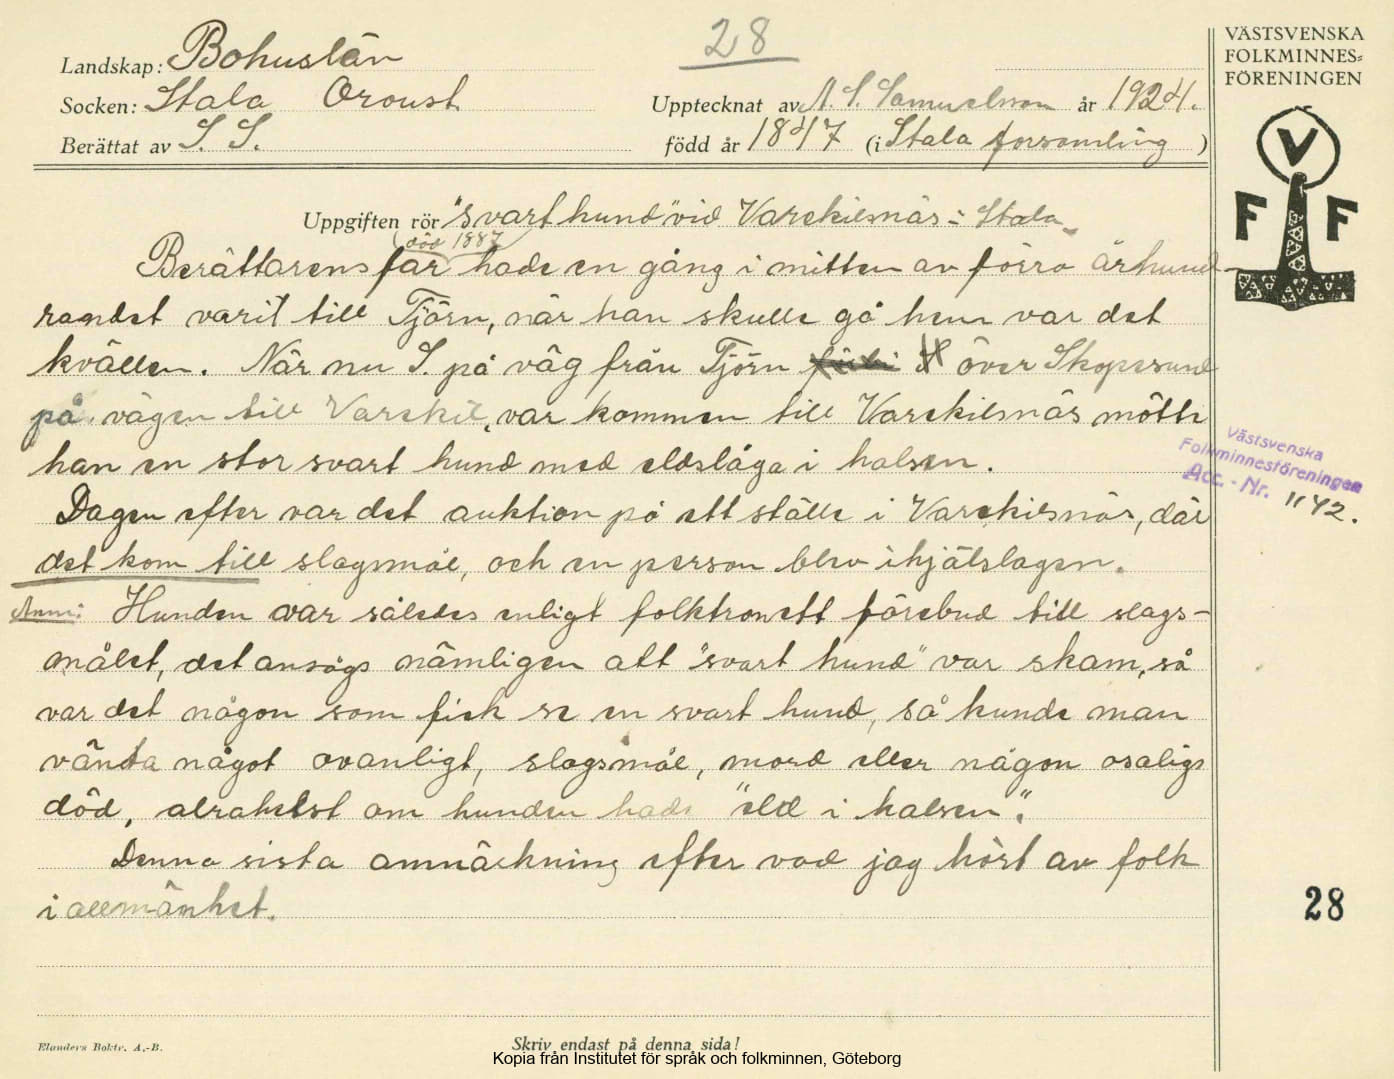 28
VÄSTSVENSKA
FOLKMINNES=
FÖRENINGEN
Landskap: Bohuslän
Socken: Stala Oroust
Upptecknat av N. S. Samuelsson år 1924.
Berättat av S. S.
född år 1847 (i Stala församling )
V
F F
Uppgiften rör "Svart hund" vid Varekilsnäs i Stala
(död 1887)
Berättarens far hade en gång i mitten av förra århund-
randet varit till Tjörn, när han skulle gå hem var det
kvällen. När nu S. på väg från Tjörn över Skåpesund
på vägen till Varekil, var kommen till Varekilsnäs mötte
han en stor svart hund med eldslåga i halsen.
Dagen efter var det auktion på ett ställe i Varekilsnäs, där
det kom till slagsmål, och en person blev ihjälslagen.
Anm: Hunden var således enligt folktron ett förebud till slags-
målet, det ansågs nämligen att "svart hund" var skam, så
var det någon som fick se en svart hund, så kunde man
vänta något ovanligt, slagsmål, mord eller någon osaligs
död, alrahelst om hunden hade "eld i halsen".
Denna sista anmärkning efter vad jag hört av folk
i allmänhet.
Västsvenska
Folkminnesföreningen
Acc. - Nr. 1142.
28
Elanders Boktr. A.-B.
Skriv endast på denna sida!
Kopia från Institutet för språk och folkminnen, Göteborg